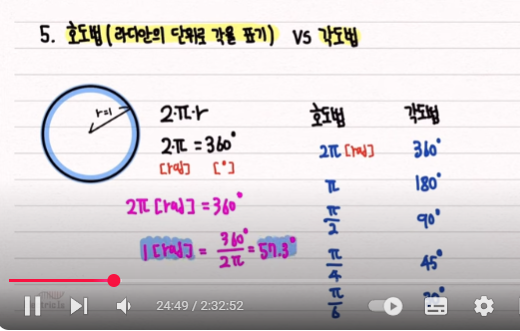 5. 호도법 (라디안의 단위로 각을 표기) vs 각도법
r=1
2·π·r
2·π = 360°
[rad] [°]
2π [rad] = 360°
1 [rad] = 360°/2π = 57.3°
호도법 각도법
2π [rad] 360°
π 180°
π/2 90°
π/4 45°
π/6
24:49 / 2:32:52